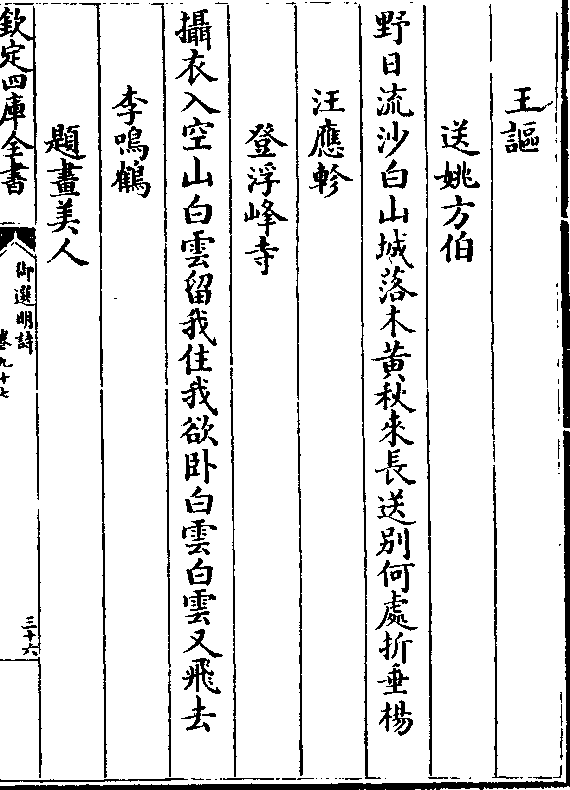 王謳
送姚方伯
野日流沙白山城落木黃秋來長送別何處折垂楊
汪應軫
登浮峰寺
攝衣入空山白雲留我住我欲卧白雲白雲又飛去
李鳴鶴
題畫美人
欽定四庫全書
御選明詩
卷九十七
三十六